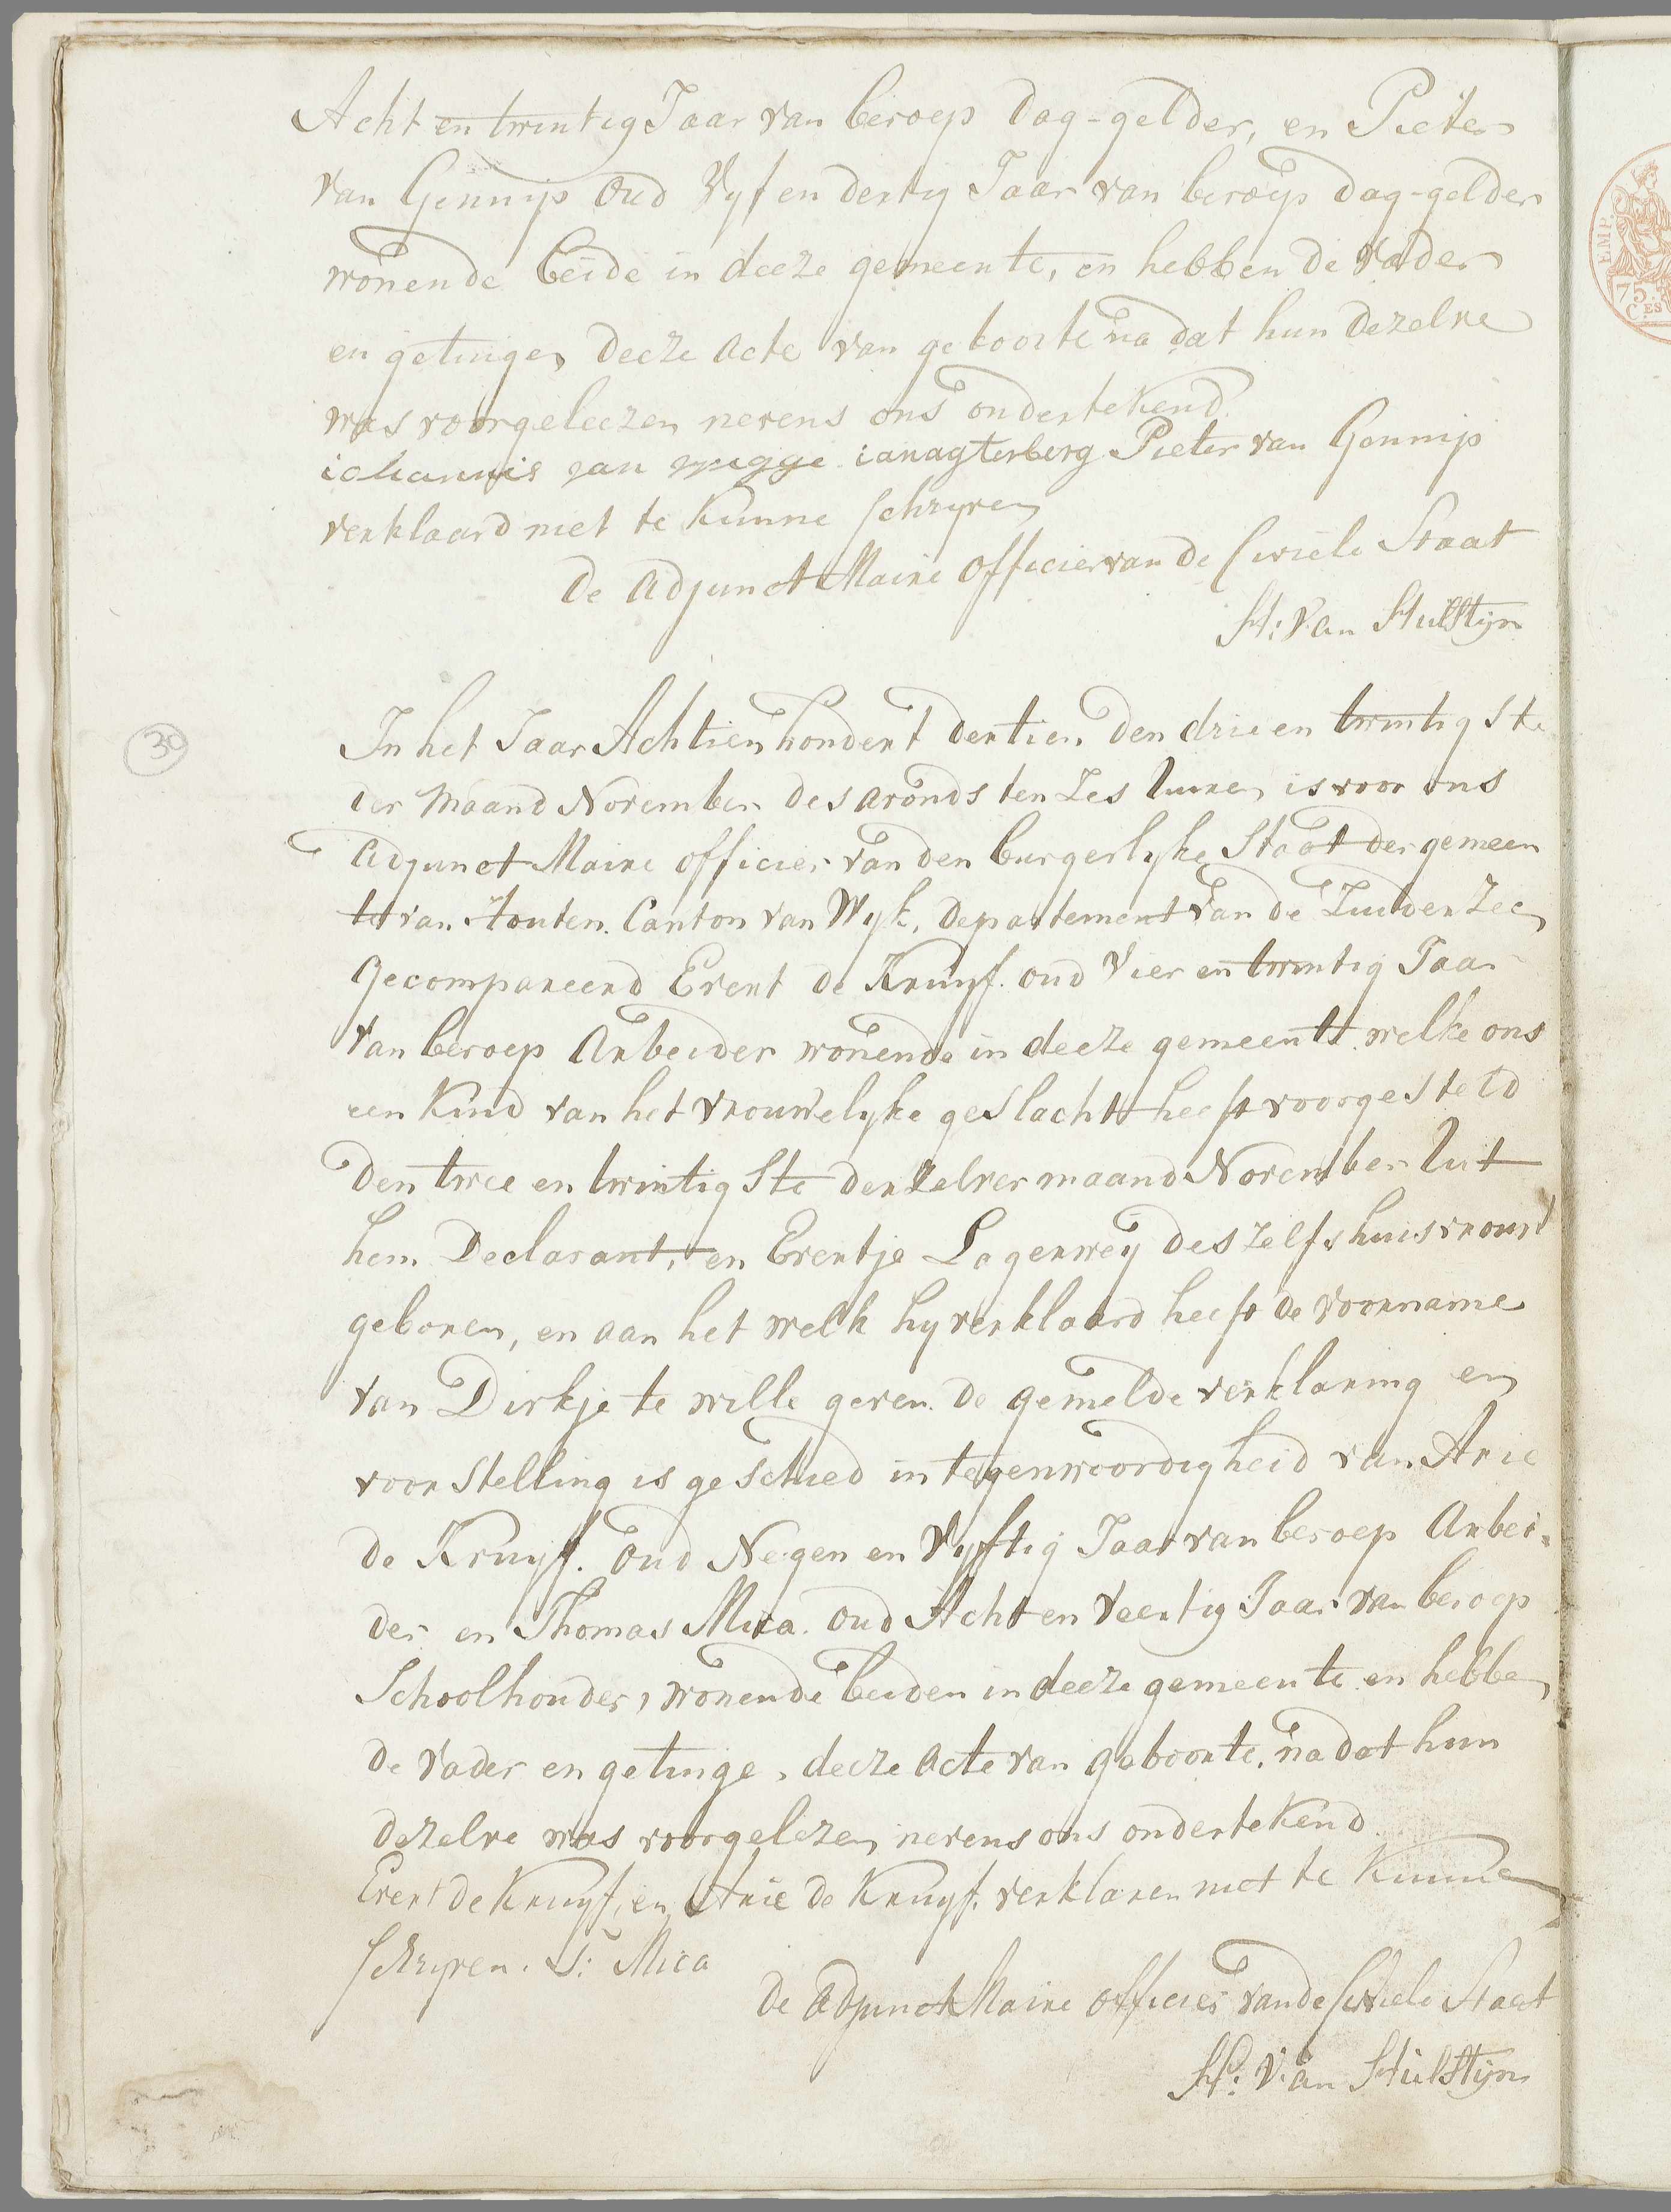 Acht en twintig Jaar van beroep dag-gelder, en Pieter
van Gennip oud Vyf en dertig Jaar van beroep dag-gelder
wonende beide in deeze gemeente, en hebben de vader
en getuigen deeze acte van geboorte na dat hun dezelve
was voorgeleezen nevens ons ondertekend.
iohannis van ianagterberg Pieter van Gennip
verklaard niet te kunne schryven
de adjunct Maire officier van de Civiele Staat
H: Van Hulstijn
30
In het Jaar Achtien hondert dertien den drie en twintigste
der maand November des avonds ten zes Uuren is voor ons
adjunct Maire officier van den burgerlyke Staat der gemeen
te van Houten Canton van Wyk, departement van de Zuider Zee
gecompareerd Evert de Kruyf. oud Vier en twintig Jaar
van beroep Arbeider wonende in deeze gemeente welke ons
een Kind van het vrouwelyke geslacht heeft voorgesteld
den twee en twintigste derzelver maand November Uit
hem Declarant, en Evertje Lagerwey des zelfs huisvrouw
geboren, en aan het welk hy verklaard heeft de voorname
van Dirkje te wille geven. de gemelde verklaring en
voorstelling is geschied in tegenwoordigheid van Arie
de Kruyf. oud Negen en Vyftig Jaar van beroep Arbei=
der en Thomas Mica. oud Acht en Veertig Jaar van beroep
Schoolhouder, wonende beiden in deeze gemeente en hebben
de vader en getuige, deeze acte van geboorte, na dat hun
dezelve was voorgelezen nevens ons ondertekend
Evert de Kruyf, en Arie de Kruyf. verklaren niet te kunne
schryven. T: Mica
de adjunct Maire officier van de Civiele Staat
H: Van Hulstijn
EMP.
75.
C.ES